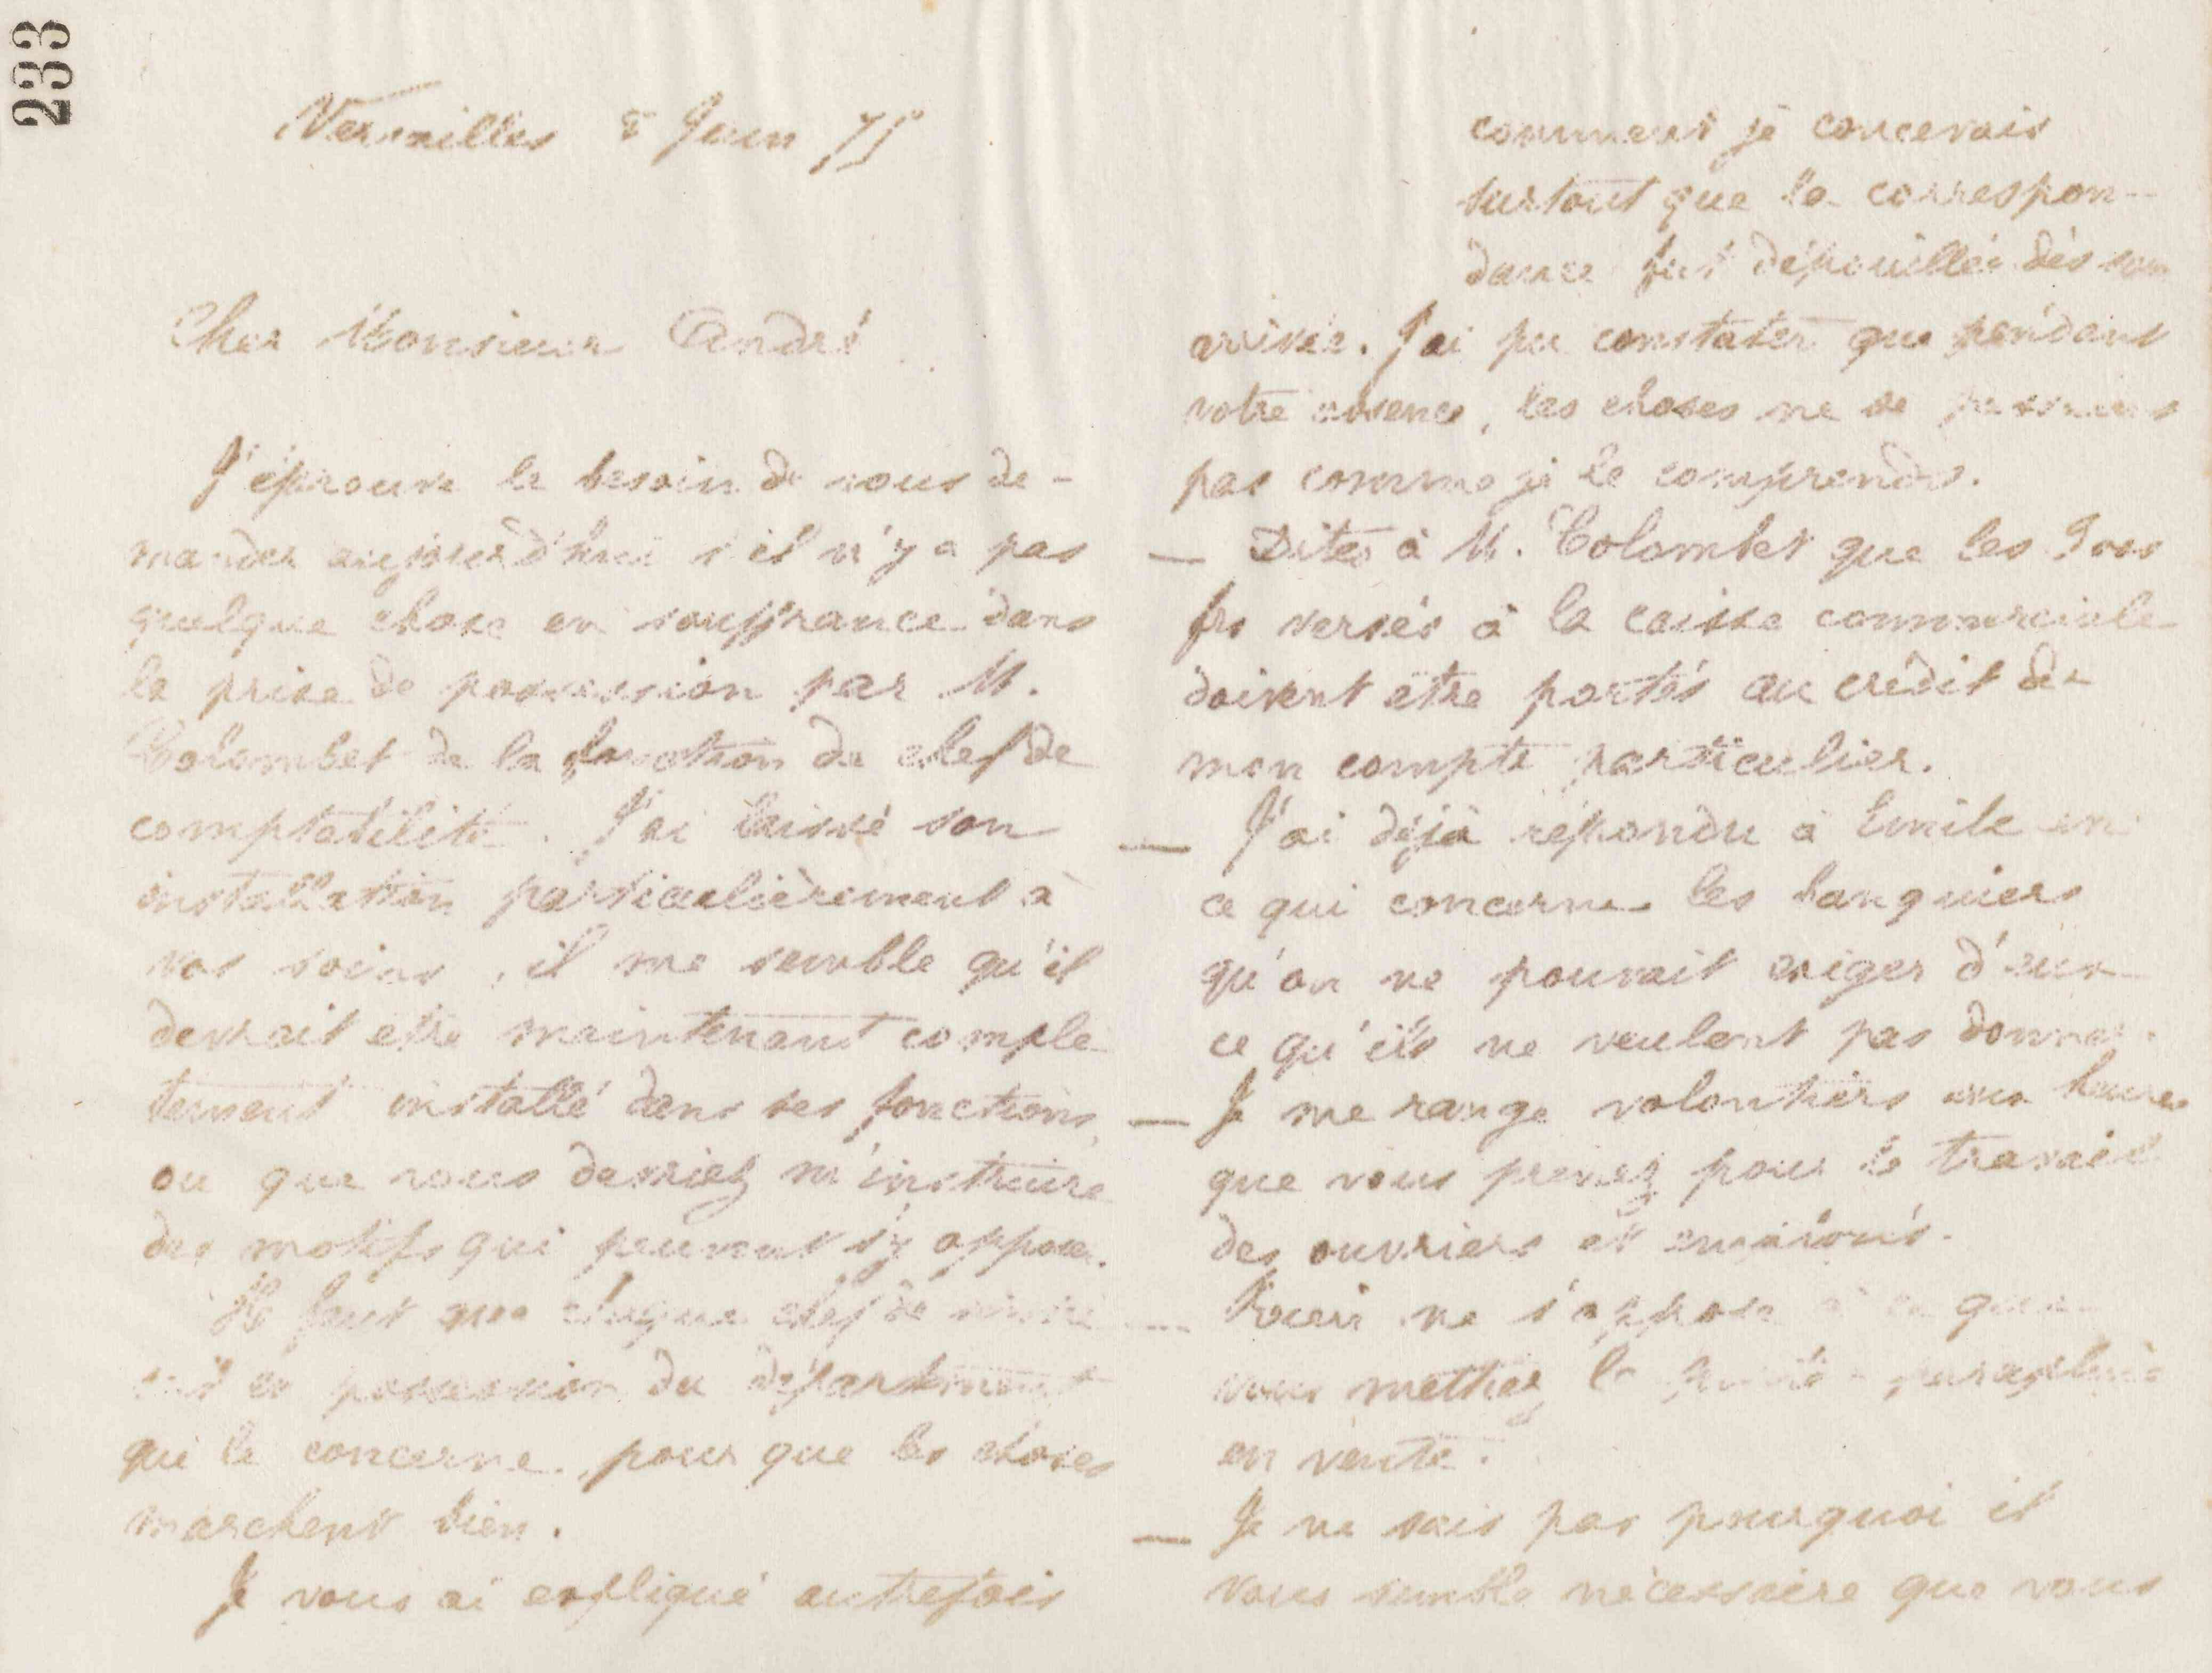 233
Versailles 8 Juin 75
Cher Monsieur André
J'éprouve le besoin de vous de-
mander aujourd'hui s'il n'y a pas
quelque chose en souffrance dans
la prise de possession par M.
Colombet de la fonction de chef de
comptabilité. J'ai laissé son
installation particulièrement à
vos soins, il me semble qu'il
devrait etre maintenant comple
tement installé dans ses fonctions,
ou que vous devriez m'instruire
des motifs qui peuvent s'y opposer.
Il faut que chaque chef de
soit en possession du département
qui le concerne, pour que les choses
marchent bien.
Je vous ai expliqué autrefois
comment je concevais
surtout que la correspon-
dance fut dépouillée dès son
arrivée. J'ai pu constater que pendant
votre absence, les choses ne se passaient
pas comme je le comprends.
— Dites à M. Colombet que les
frs versés à la caisse commerciale
doivent etre portés au crédit de
mon compte particulier.
— J'ai déjà répondu à Emile en
ce qui concerne les banquiers
qu'on ne pouvait exiger d'eux
ce qu'ils ne veulent pas donner.
— Je me range volontiers aux heures
que vous prenez pour le travail
des ouvriers et employés.
— Rien ne s'oppose à ce que
vous mettiez la
en vente.
— Je ne sais pas pourquoi il
vous semble nécessaire que vous